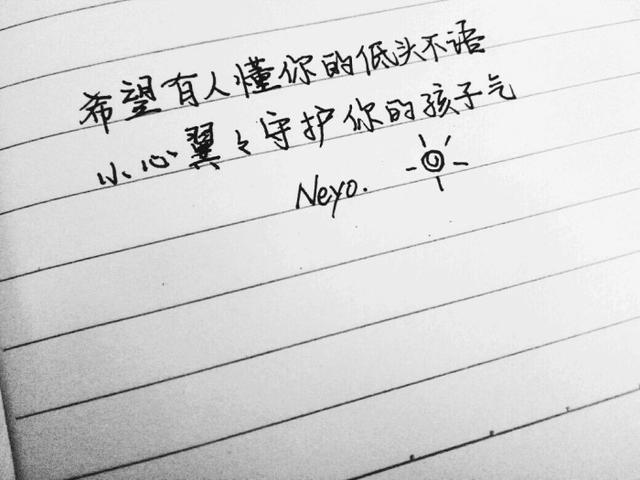 希望有人懂你的低头不语
小心翼々守护你的孩子气
Neyo.